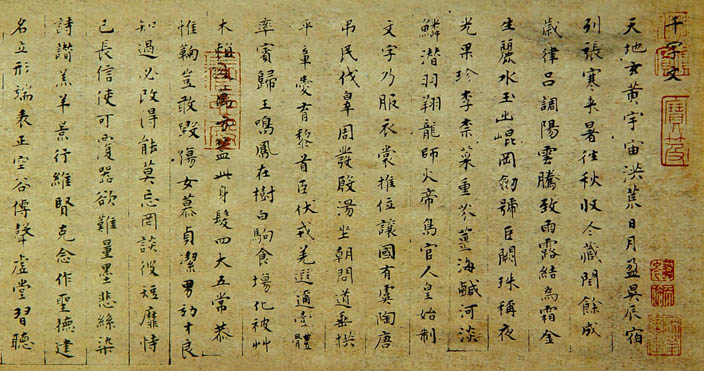 千字文
天地玄黃宇宙洪荒日月盈昃辰宿
列張寒来暑往秋收冬藏閏餘成
歲律呂調陽雲騰致雨露結為霜金
生麗水玉出崐岡劒號巨闕珠稱夜
光果珍李柰菜重芥薑海鹹河淡
鱗潛羽翔龍師火帝鳥官人皇始制
文字乃服衣裳推位讓國有虞陶唐
吊民伐辠周發殷湯坐朝問道垂拱
平章愛育黎首臣伏戎羌遐邇壹體
率賓歸王鳴鳳在樹白駒食場化被艸
木賴及萬方蓋此身髮四大五常恭
惟鞠豈敢毀傷女慕貞潔男効才良
知過必改得能莫忘罔談彼短靡恃
己長信使可覆器欲難量墨悲絲染
詩讚羔羊景行維賢克念作聖德建
名立形端表正空谷傳聲虛堂習聽